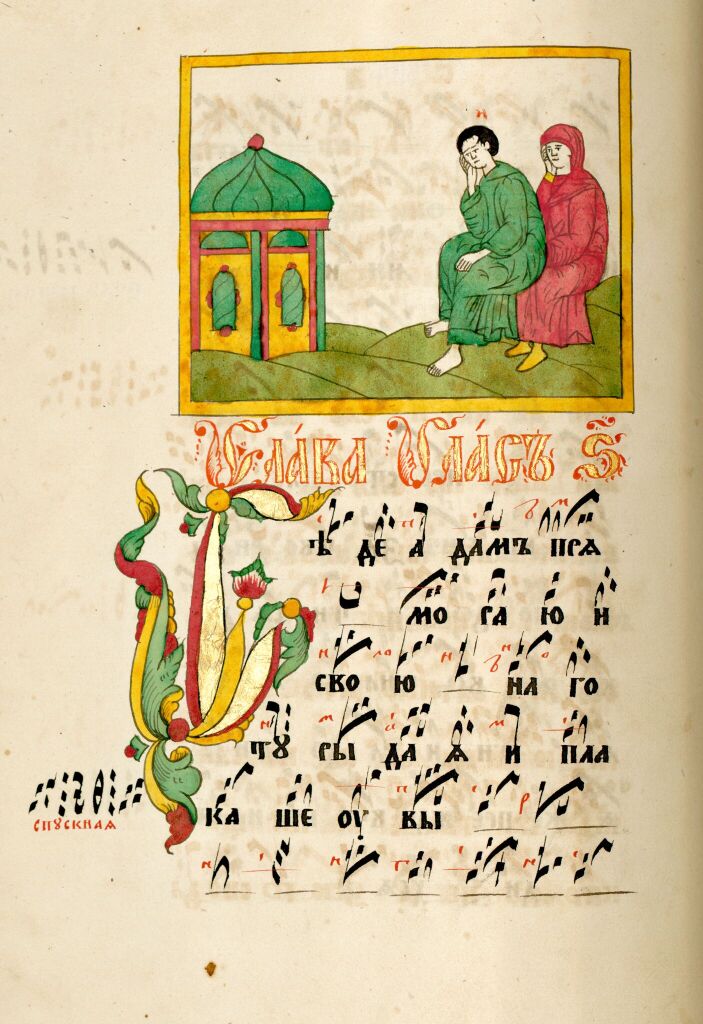 Сла́ва Гла́съ ѕ҃
Сѣ де а дамъ прѧ
мо ра ю и
сво ю на го
тꙋ ры да ѧ и пла
ка ше оу вы
спꙋскнаѧ